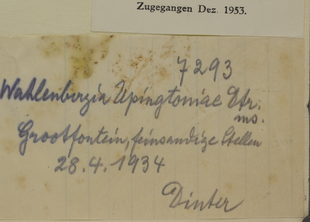 Zugegangen Dez. 1953.
7293
Wahlenbergia Upingtoniae Dtr.
ms.
Grootfontein, feinsandige Stellen
28.4.1934
Dinter